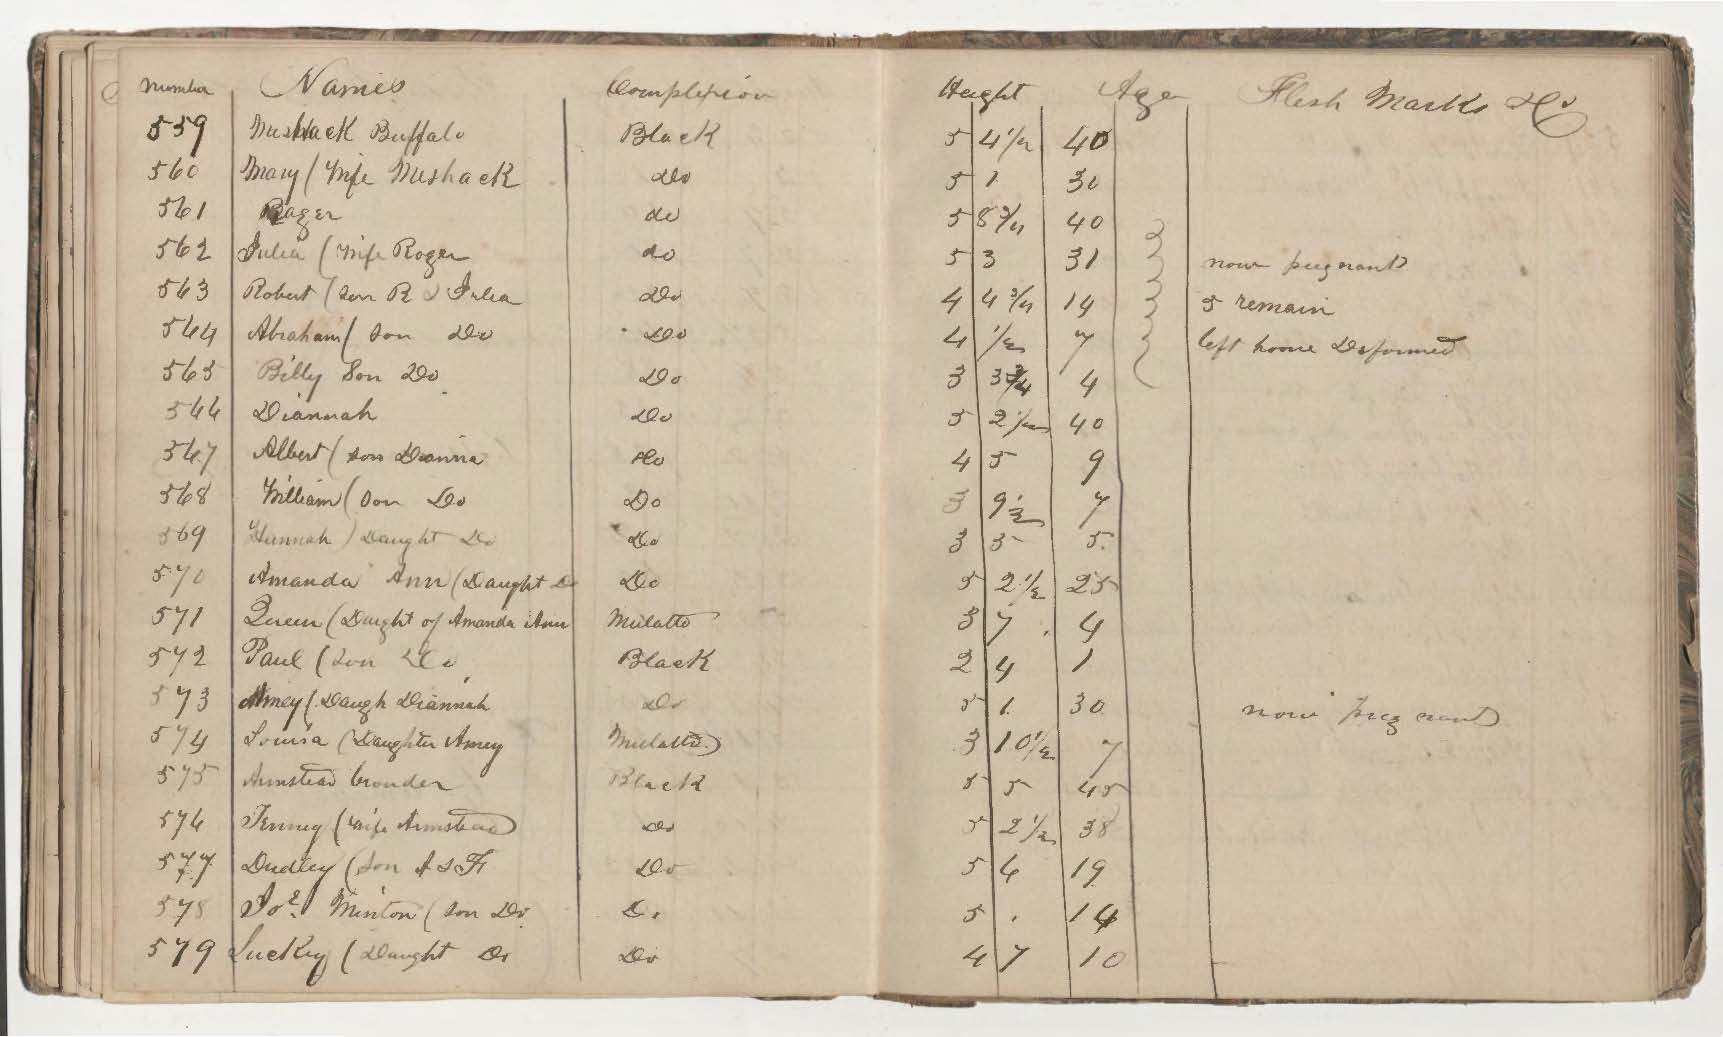 Number Names Complexion Height Age Flesh Marks &c
559 Mushack Buffalo Black 5 4 1/2 40
560 Mary (Wife Mushack Do 5 1 30
561 Roger do 5 8 3/4 40
562 Julia (Wife Roger do 5 3 31 now pregnant
563 Robert (son R & Julia Do 4 4 3/4 14 5 remain
564 Abraham (son Do Do 4 1/2 7 left home Deformed
565 Billy Son Do Do 3 3 3/4 4
566 Diannah Do 5 2 1/2 40
567 Albert (son Dianna Do 4 5 9
568 William (son Do Do 3 9 1/2 7
569 Hannah) Daught Do Do 3 5 5
570 Amanda Ann (Daught Do Do 5 2 1/2 25
571 Queen (Daught of Amanda Ann Mulatto 3 7 4
572 Paul (son Do Black 2 4 1
573 Amey (Daugh Diannah Do 5 1 30 now pregnant
574 Louisa (Daughter Amey Mulatto 3 10 1/2 7
575 Armstead Crouder Black 5 5 45
576 Fenney (Wife Armstead Do 5 2 1/2 38
577 Dudley (son A & F Do 5 6 19
578 Jos. Minton (son Do Do 5 . 14
579 Luckey (Daught Do Do 4 7 10